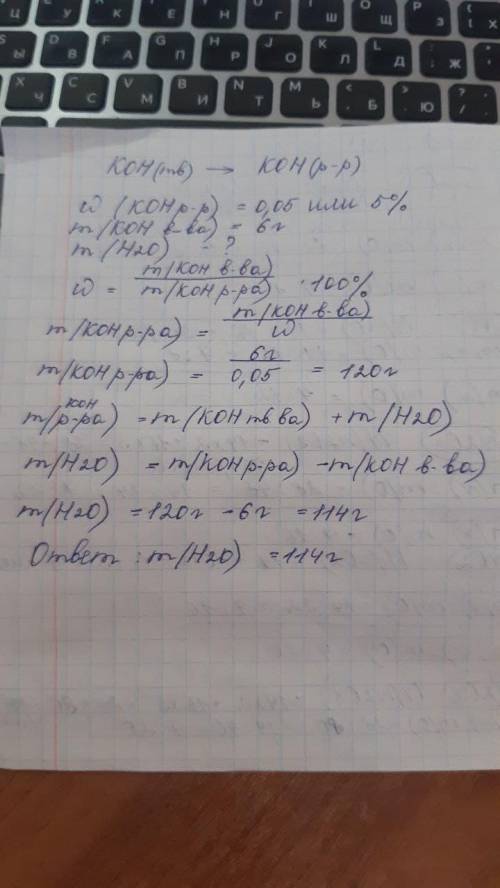 Ц У К Е Н Г Ш Щ З
S Ы D В F А G П H Р J О K Л L Д : ; Ж
X Ч C С V М B И N Т M Ь < , Б > . Ю ? /
KOH(тв) → KOH(р-р)
ω (KOH р-р) = 0,05 или 5%
m(KOH в-ва) = 6г
m(H2O) - ?
ω = m(KOH в-ва) / m(KOH р-ра) · 100%
m(KOH р-ра) = m(KOH в-ва) / ω
m(KOH р-ра) = 6г / 0,05 = 120г
m(р-ра KOH) = m(KOH тв ва) + m(H2O)
m(H2O) = m(KOH р-ра) - m(KOH в-ва)
m(H2O) = 120г - 6г = 114г
Ответ: m(H2O) = 114г